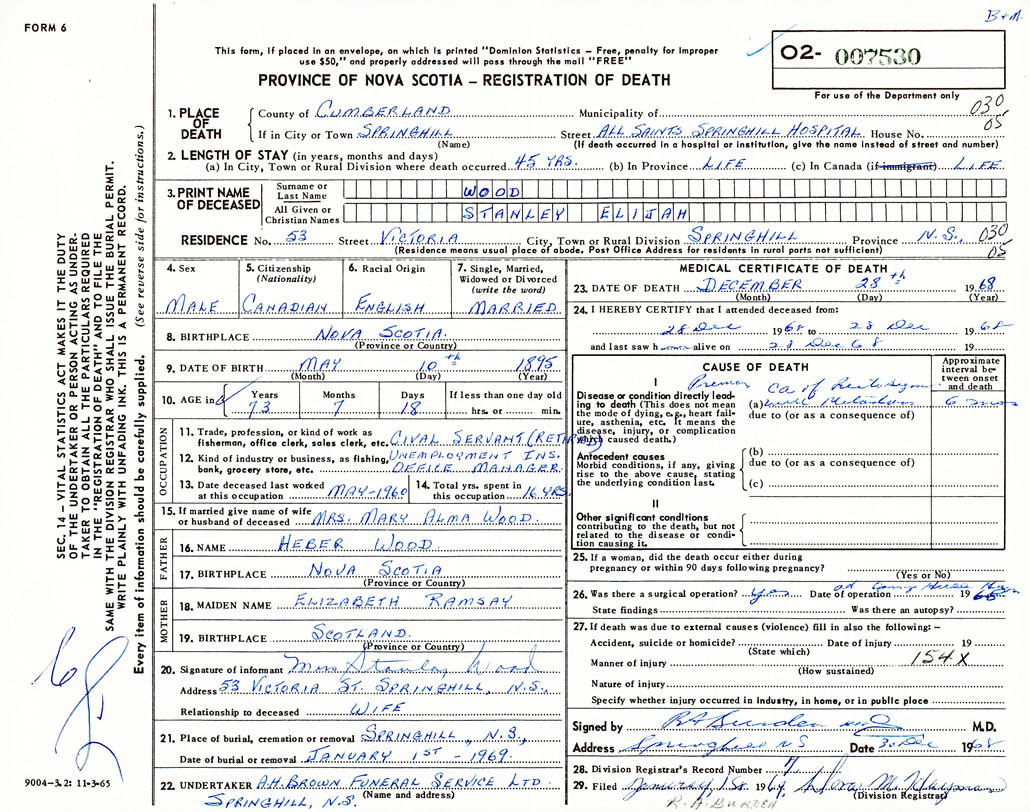 FORM 6
B+M.
This form, if placed in an envelope, on which is printed "Dominion Statistics – Free, penalty for improper
use $50," and properly addressed will pass through the mail "FREE"
PROVINCE OF NOVA SCOTIA – REGISTRATION OF DEATH
02- 007530
For use of the Department only
1. PLACE OF DEATH
County of CUMBERLAND Municipality of 030
If in City or Town SPRINGHILL Street ALL SAINTS SPRINGHILL HOSPITAL House No. 05
(Name) (If death occurred in a hospital or institution, give the name instead of street and number)
2. LENGTH OF STAY (in years, months and days)
(a) In City, Town or Rural Division where death occurred 45 YRS. (b) In Province LIFE (c) In Canada (if immigrant) LIFE
3. PRINT NAME OF DECEASED
Surname or Last Name WOOD
All Given or Christian Names STANLEY ELIJAH
RESIDENCE No. 53 Street VICTORIA City, Town or Rural Division SPRINGHILL Province N.S., 030
(Residence means usual place of abode. Post Office Address for residents in rural parts not sufficient) 05
4. Sex
MALE
5. Citizenship (Nationality)
CANADIAN
6. Racial Origin
ENGLISH
7. Single, Married, Widowed or Divorced (write the word)
MARRIED
8. BIRTHPLACE NOVA SCOTIA
(Province or Country)
9. DATE OF BIRTH MAY 10th 1895
(Month) (Day) (Year)
10. AGE in Years Months Days If less than one day old
73 7 18 hrs. or min.
OCCUPATION
11. Trade, profession, or kind of work as
fisherman, office clerk, sales clerk, etc. CIVAL SERVANT (RETIRED)
12. Kind of industry or business, as fishing, UNEMPLOYMENT INS.
bank, grocery store, etc. OFFICE MANAGER
13. Date deceased last worked
at this occupation MAY-1960
14. Total yrs. spent in
this occupation 16 YRS.
15. If married give name of wife
or husband of deceased MRS. MARY ALMA WOOD.
FATHER
16. NAME HEBER WOOD
17. BIRTHPLACE NOVA SCOTIA
(Province or Country)
MOTHER
18. MAIDEN NAME ELIZABETH RAMSAY
19. BIRTHPLACE SCOTLAND.
(Province or Country)
20. Signature of informant Mrs Stanley Wood
Address 53 VICTORIA ST. SPRINGHILL, N.S.,
Relationship to deceased WIFE
21. Place of burial, cremation or removal SPRINGHILL, N.S.,
Date of burial or removal JANUARY 1ST - 1969.
22. UNDERTAKER A.H. BROWN FUNERAL SERVICE LTD.
SPRINGHILL, N.S. (Name and address)
MEDICAL CERTIFICATE OF DEATH
23. DATE OF DEATH DECEMBER 28th 1968
(Month) (Day) (Year)
24. I HEREBY CERTIFY that I attended deceased from:
28 Dec 1968 to 28 Dec 1968
and last saw h alive on 28 Dec 68 19
CAUSE OF DEATH
Approximate interval between onset and death
I
Disease or condition directly leading to death (This does not mean the mode of dying, e.g., heart failure, asthenia, etc. It means the disease, injury, or complication which caused death.)
(a) Ca of 6 mos
due to (or as a consequence of)
Antecedent causes
Morbid conditions, if any, giving rise to the above cause, stating the underlying condition last.
(b)
due to (or as a consequence of)
(c)
II
Other significant conditions
contributing to the death, but not related to the disease or condition causing it.
25. If a woman, did the death occur either during
pregnancy or within 90 days following pregnancy?
(Yes or No)
26. Was there a surgical operation? yes Date of operation 1968
State findings Was there an autopsy?
27. If death was due to external causes (violence) fill in also the following: –
Accident, suicide or homicide? Date of injury 19
(State which) 154 X
Manner of injury
(How sustained)
Nature of injury
Specify whether injury occurred in Industry, in home, or in public place
Signed by RABurden M.D.
Address Springhill NS Date 30 Dec 1968
28. Division Registrar's Record Number 7
29. Filed January 1st 1969
(Division Registrar)
R.A. BURDEN
SEC. 14 – VITAL STATISTICS ACT MAKES IT THE DUTY
OF THE UNDERTAKER OR PERSON ACTING AS UNDER-
TAKER TO OBTAIN ALL THE PARTICULARS REQUIRED
IN THE "REGISTRATION OF DEATH" AND TO FILE THE
SAME WITH THE DIVISION REGISTRAR WHO SHALL ISSUE THE BURIAL PERMIT.
WRITE PLAINLY WITH UNFADING INK. THIS IS A PERMANENT RECORD.
Every item of information should be carefully supplied. (See reverse side for instructions.)
9004-3.2: 11-3-65